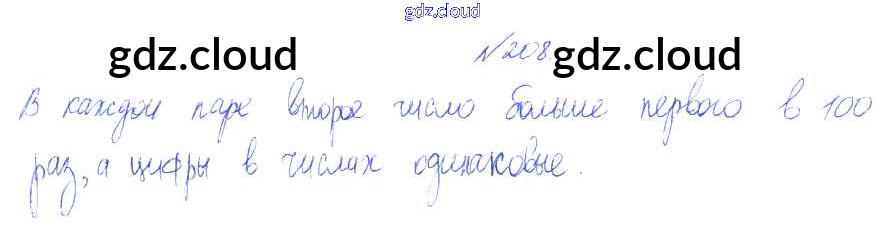 gdz.cloud
gdz.cloud №208. gdz.cloud
В каждой паре второе число больше первого в 100
раз, а цифры в числах одинаковые.